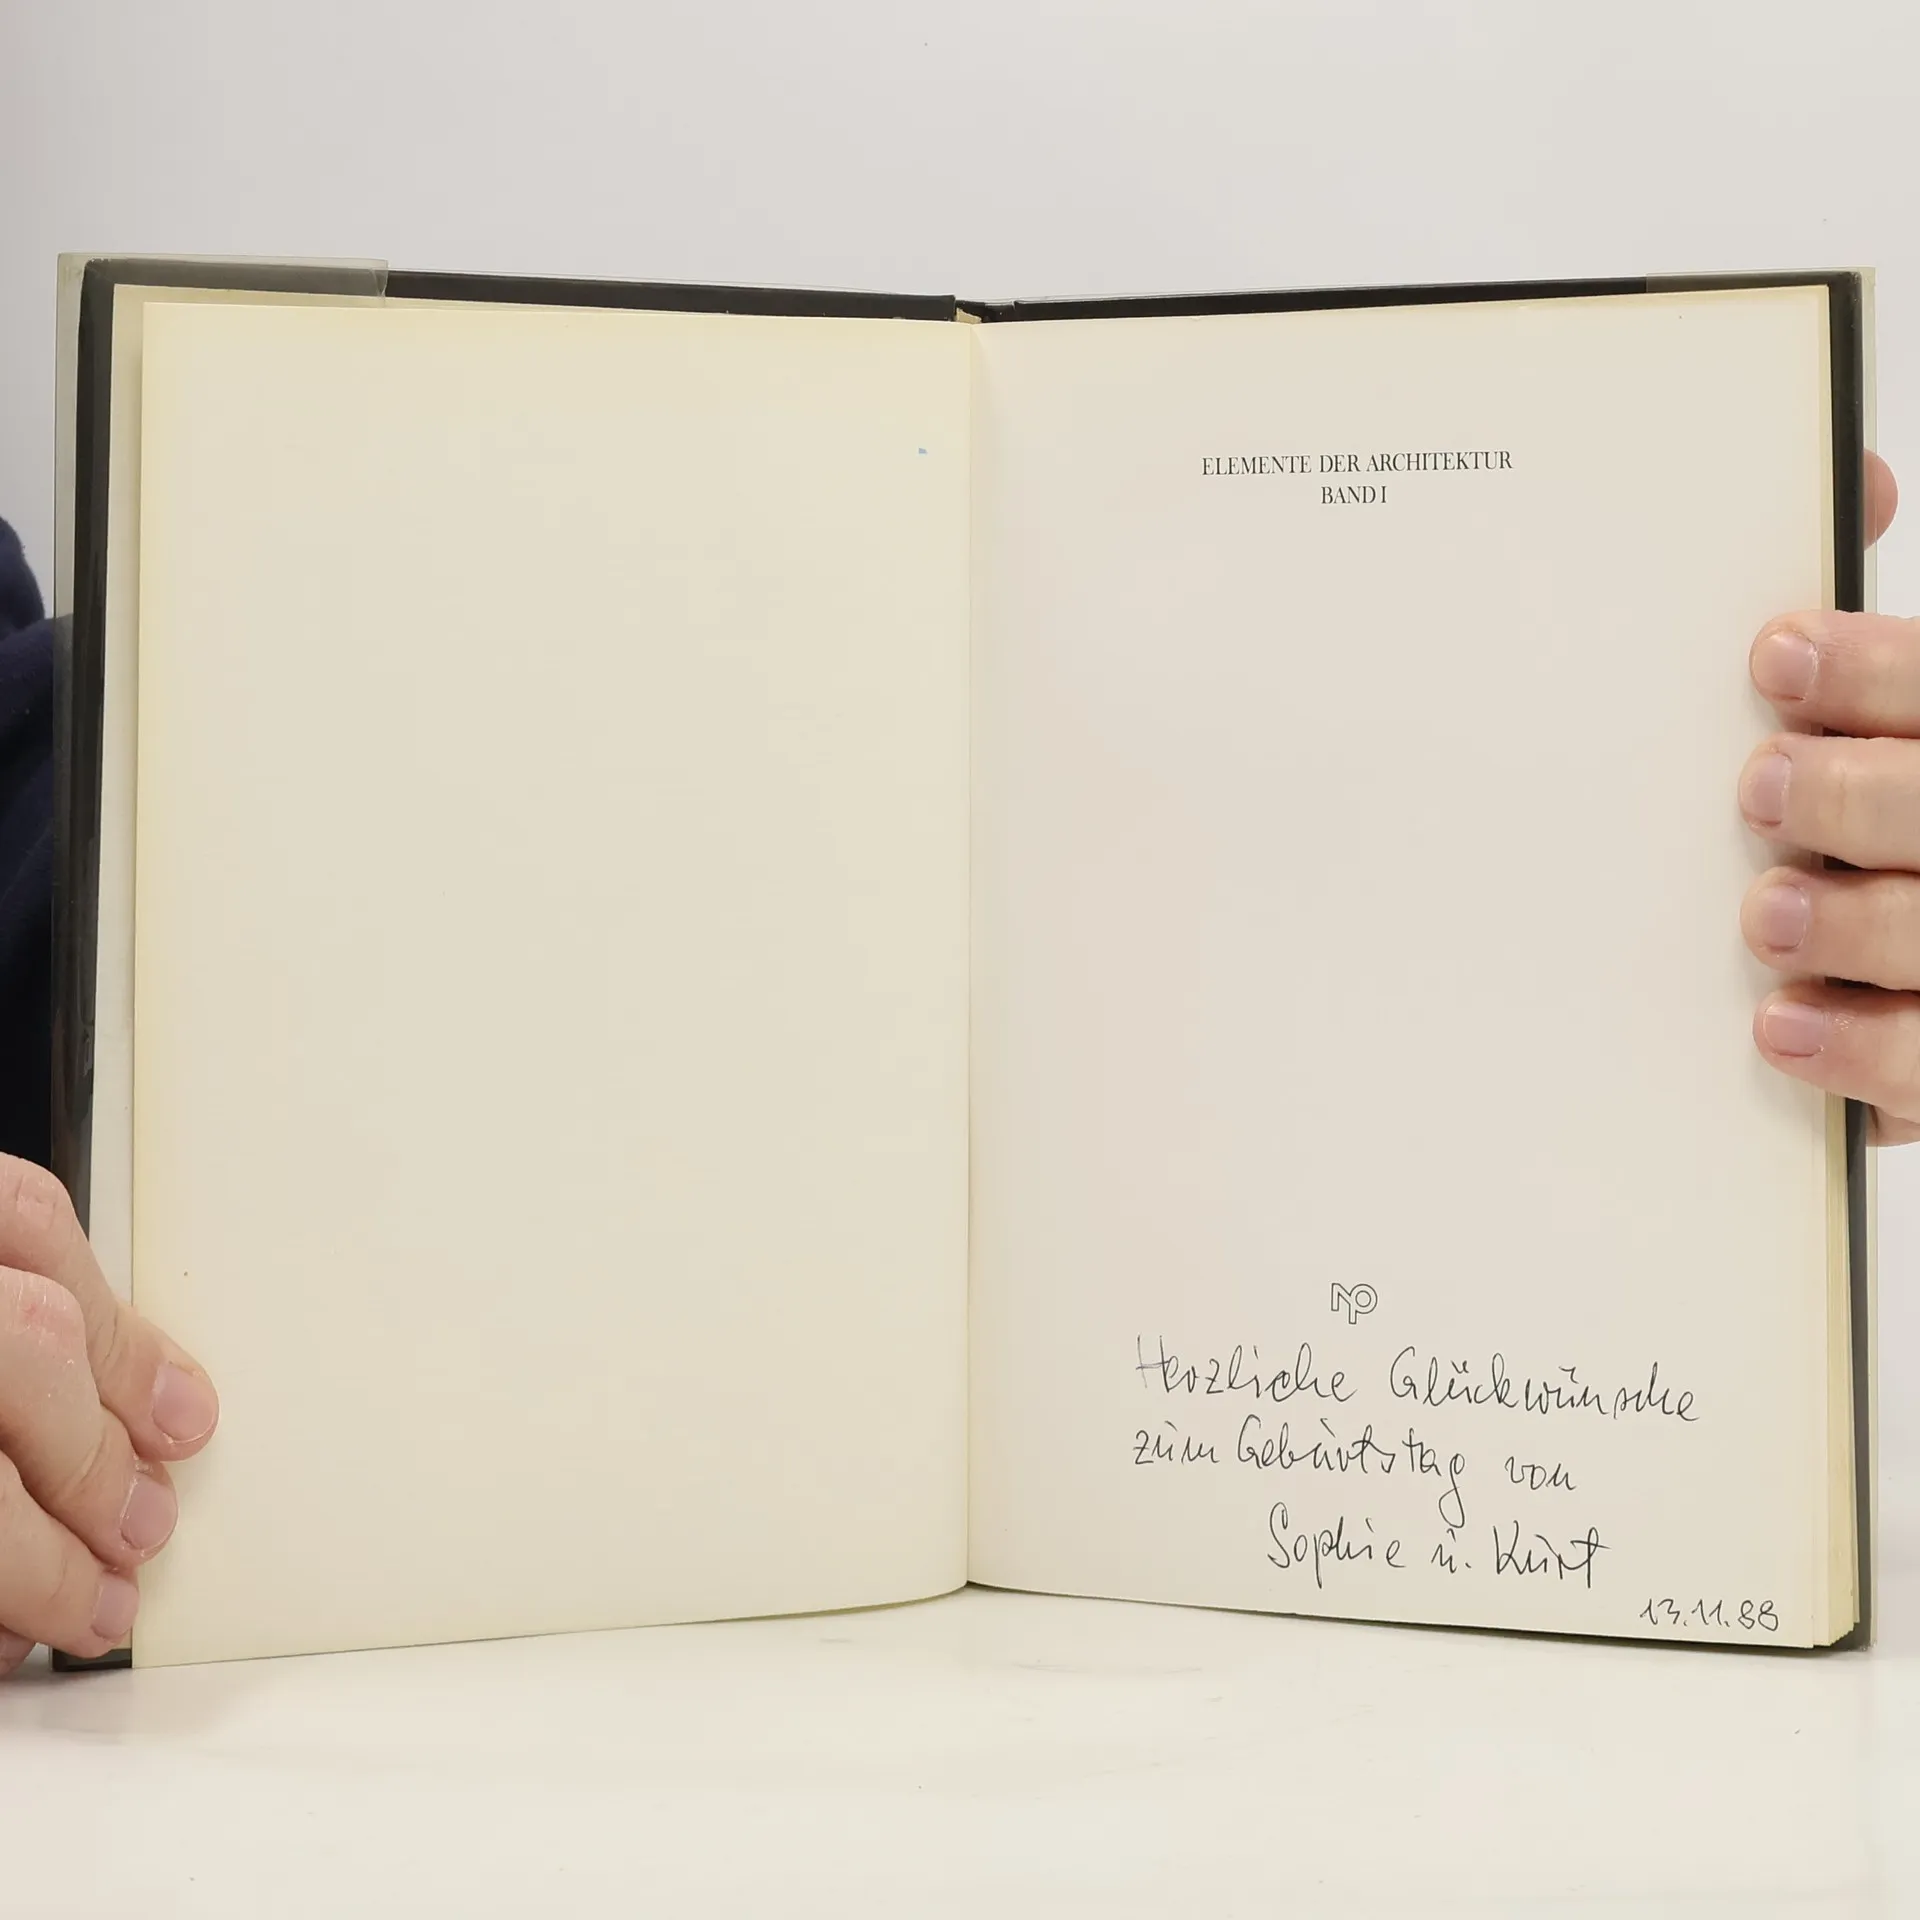 ELEMENTE DER ARCHITEKTUR
BAND I
NP
Herzliche Glückwünsche
zum Geburtstag von
Sophie u. Kurt
13.11.88